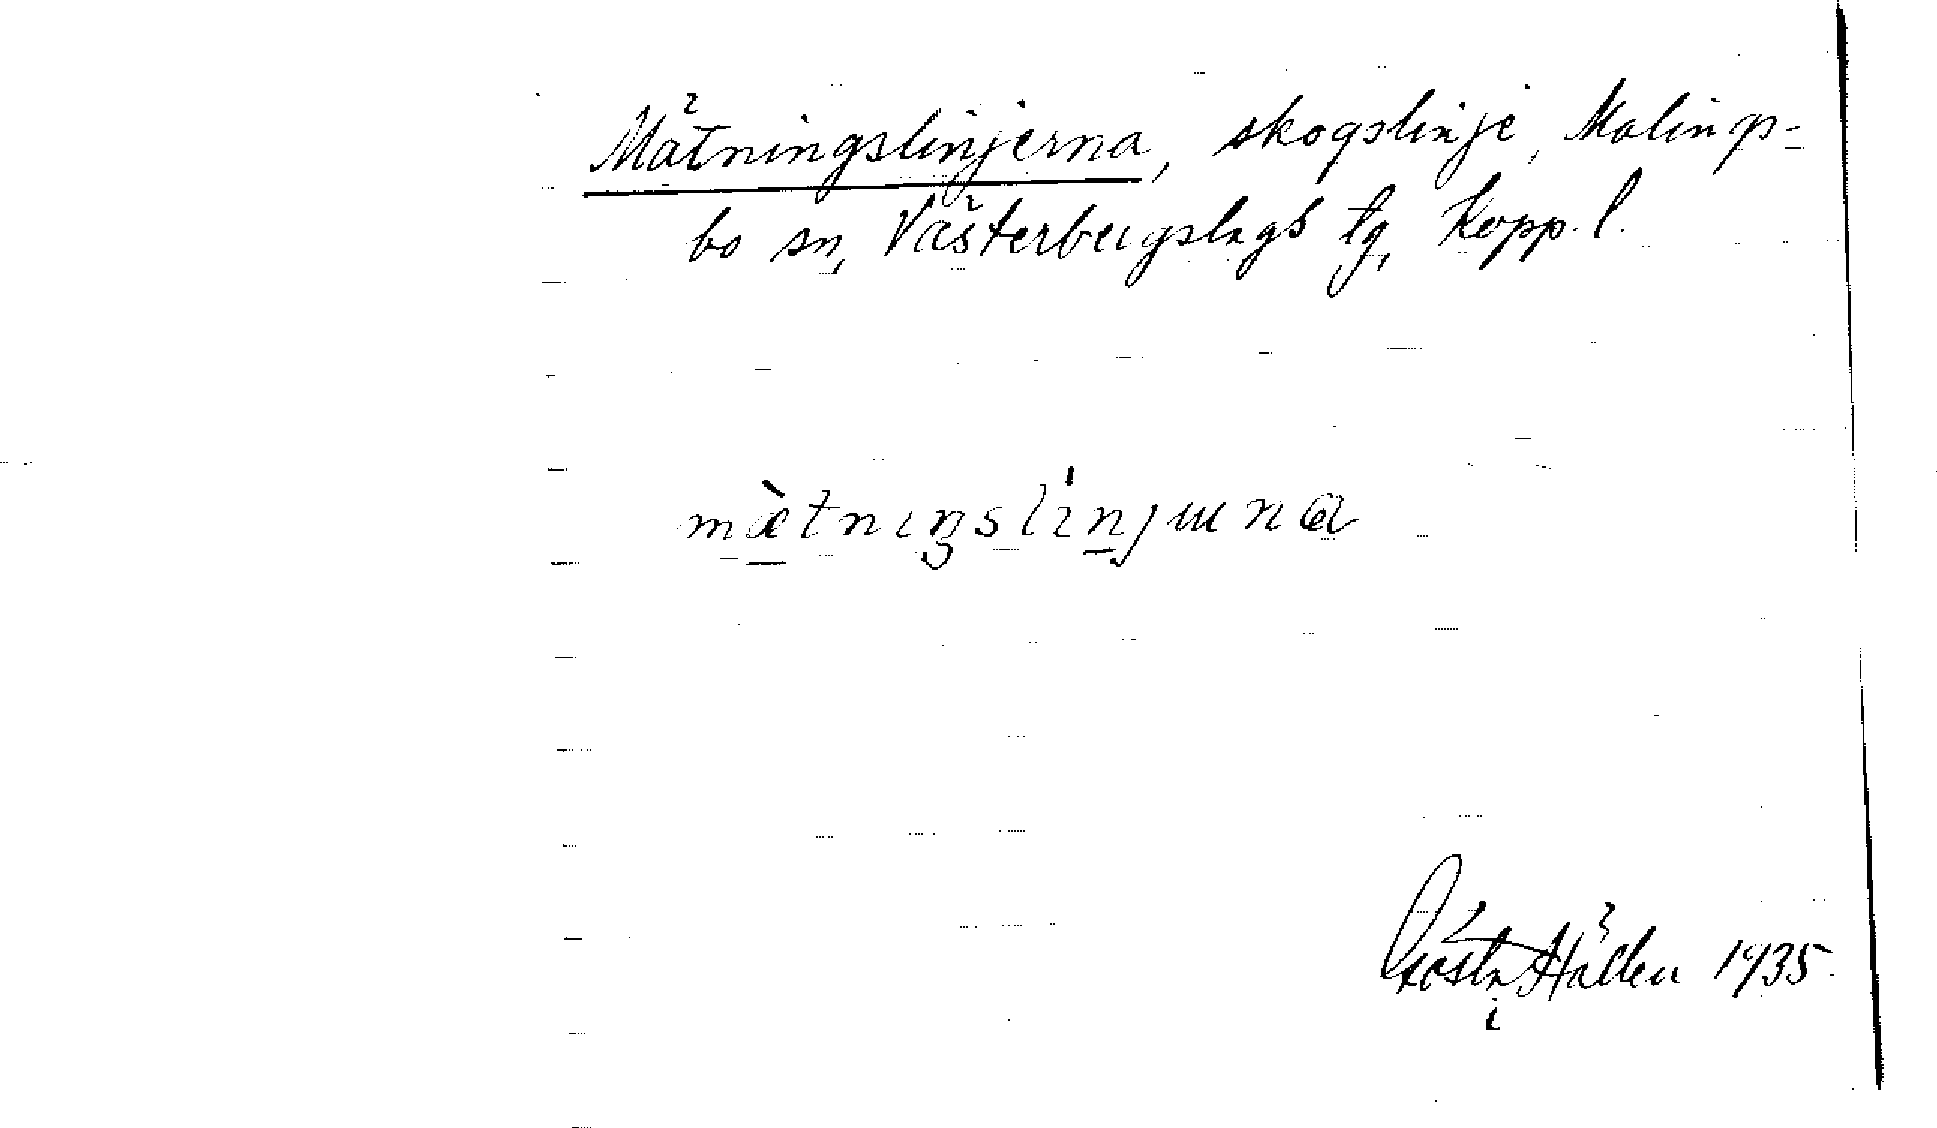 Mätningslinjerna, skogslinje, Malings-
bo sn, Västerbergslags tg, Kopp. l.
mæ̀tnıŋslìnjɯna
Gösta Hállen 1935.